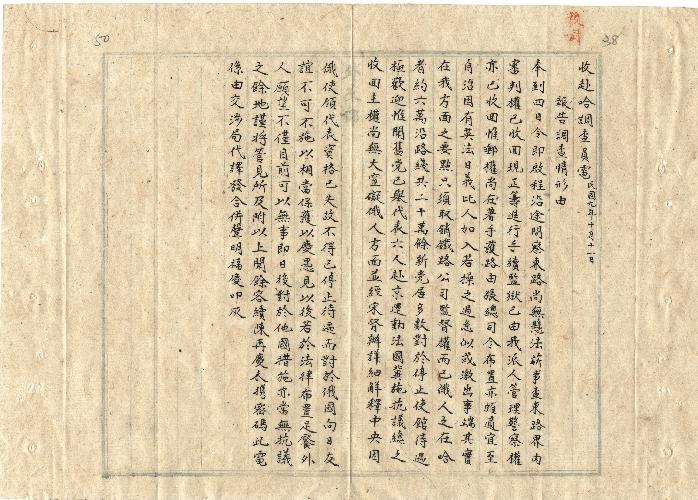 收赴哈調查員電 民國九年十月十一日
報告調查情形由
奉到四日令即啟程沿途明察東路尚無懸法訪事查東路界內
審判權已收回現正籌進行手續監獄已由我派人管理警察權
亦已收回惟郵權尚在著手護路由張總司令布置亦頗適宜至
自治因有英法日義比人加入若操之過急似或激出事端其實
在我方面之要點只須取銷鐵路公司監督權而已俄人之在哈
者約六萬沿路綫共二十萬餘新黨居多數對於停止使館待遇
極歡迎惟聞舊黨已舉代表六人赴京運動法國冀施抗議總之
收回主權尚無大窒礙俄人方面並經宋督辦詳細解釋中央因
俄使領代表資格已失故不得已停止待遇而對於俄國向日友
誼不可不施以相當保護以慶愚見以後若於法律布置足饜外
人願望不僅目前可以無事即日後對於他國措施亦當無抗議
之餘地謹將管見所及附以上聞餘容續陳再慶未攜密碼此電
係由交涉局代譯發合併聲明福慶叩灰
50
38